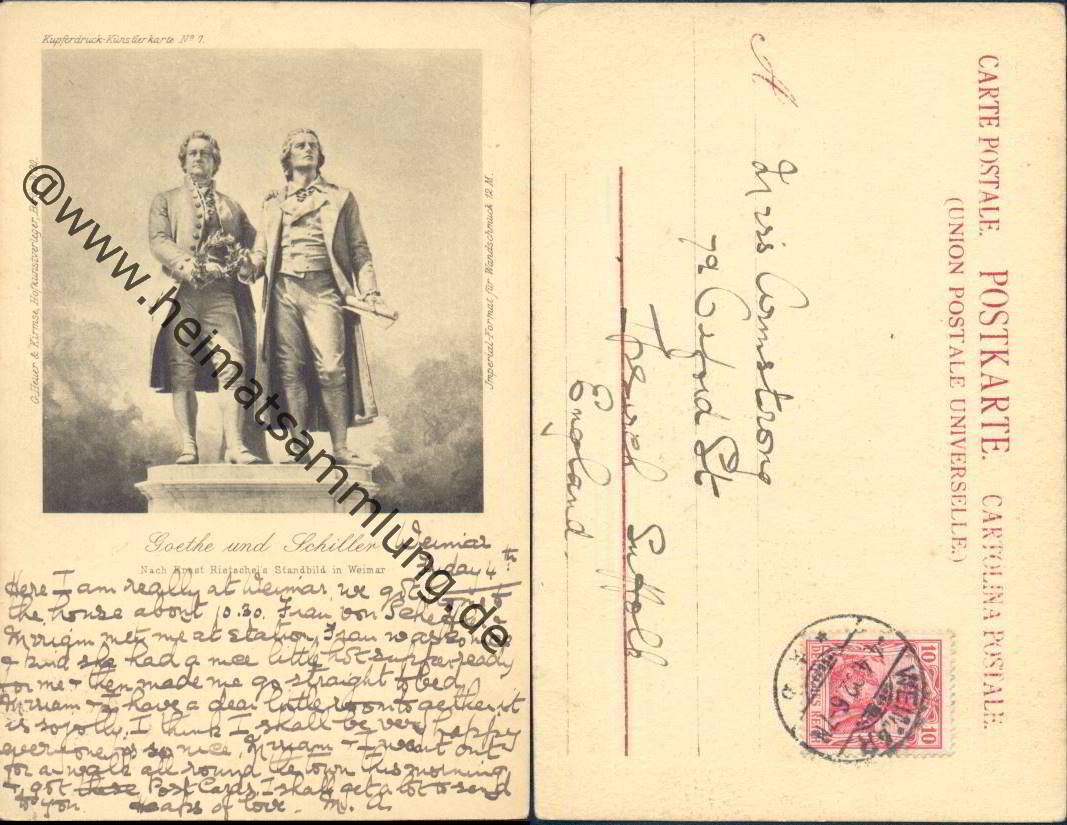 Kupferdruck-Künstlerkarte Nº 7.
G. Heuer & Kirmse, Hofkunstverleger,
Imperial-Format für Wandschmuck 12 M.
@www.heimatsammlung.de
Goethe und Schiller
Nach Ernst Rietschel's Standbild in Weimar
Weimar
day 4th
Here I am really at Weimar, we got to
the house about 10.30. Frau von
Mirriam met me at station, Frau was
& kind she had a nice little hot supper ready
for me & then made me go straight to bed,
Mirriam & I have a dear little room together, it
is so jolly, I think I shall be very happy
everyone is so nice, Mirriam & I went out
for a walk all round the town this morning
& got these Post Cards, I shall get a lot to send
to you. Heaps of love. M. A.
CARTE POSTALE. POSTKARTE. CARTOLINA POSTALE.
(UNION POSTALE UNIVERSELLE.)
A
Miss Armstrong
79 Oxford St
Ipswich Suffolk
England.
10 10
WEIMAR